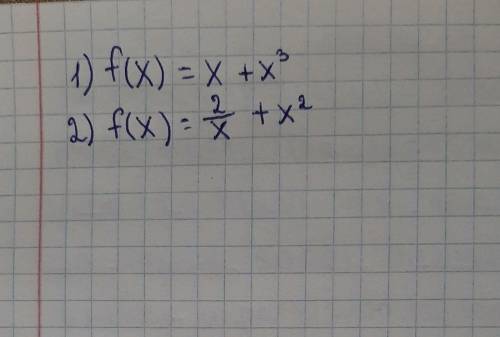 1) f(x) = x + x³
2) f(x) = 2/x + x²